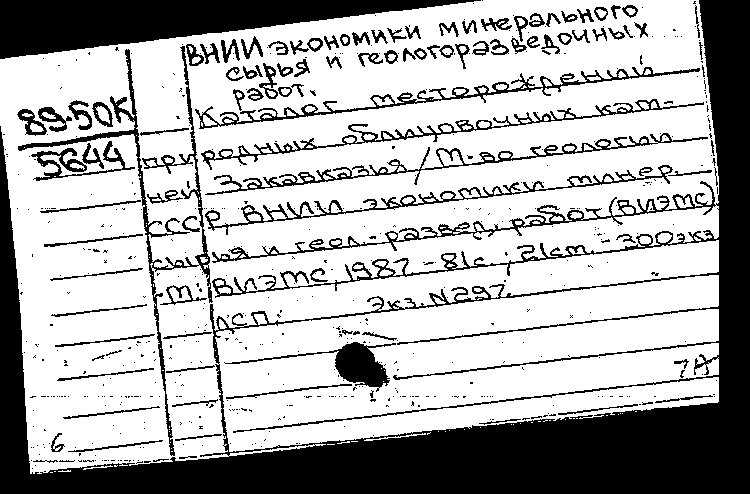 ВНИИ экономики минерального
сырья и геологоразведочных
работ.
89-50К
5644
Каталог месторождений
природных облицовочных кам-
ней Закавказья / М-во геологии
СССР, ВНИИ экономики минер.
сырья и геол.-развед. работ (ВИЭМС)
-М.: ВИЭМС, 1987 - 81с.; 21см. - 300экз
ДСП. Экз. N297.
7А
6